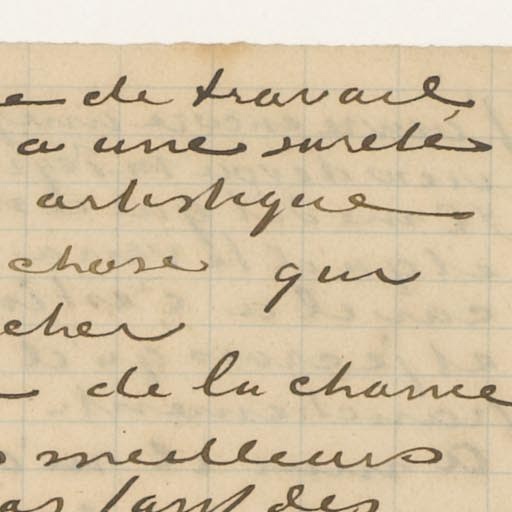 de travail
a une sureté
artistique
chose qui
cher
de la chance
meilleurs
des